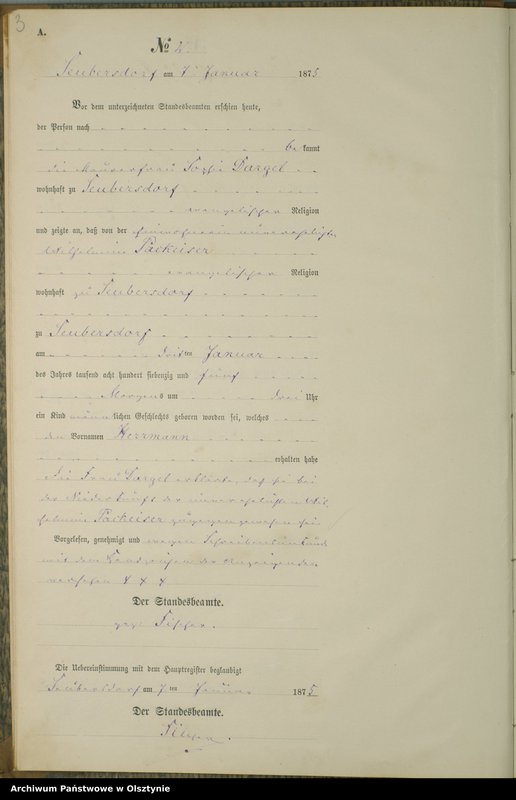 3
A.
№ 4.
Teubersdorf am 7 Januar 1875
Vor dem unterzeichneten Standesbeamten erschien heute,
der Person nach
be kannt
die Maurerfrau Dargel
wohnhaft zu Teubersdorf
evangelischer Religion
und zeigte an, daß von der unverehelichten
Wilhelmine Packeiser
evangelischer Religion
wohnhaft zu Teubersdorf
zu Teubersdorf
am dritten Januar
des Jahres tausend acht hundert siebenzig und fünf
Morgens um drei Uhr
ein Kind männlichen Geschlechts geboren worden sei, welches
den Vornamen Herrmann
erhalten habe
Die Frau Dargel erklärte, daß sie bei
der Niederkunft der unverehelichten Wil-
helmine Packeiser zugegen gewesen sei
Vorgelesen, genehmigt und wegen Schreibensunkunde
mit den Handzeichen der Anzeigenden
versehen + + +
Der Standesbeamte.
gez. Fischer.
Die Uebereinstimmung mit dem Hauptregister beglaubigt
Teubersdorf am 7 ten Januar 1875
Der Standesbeamte.
Fischer.
Archiwum Państwowe w Olsztynie